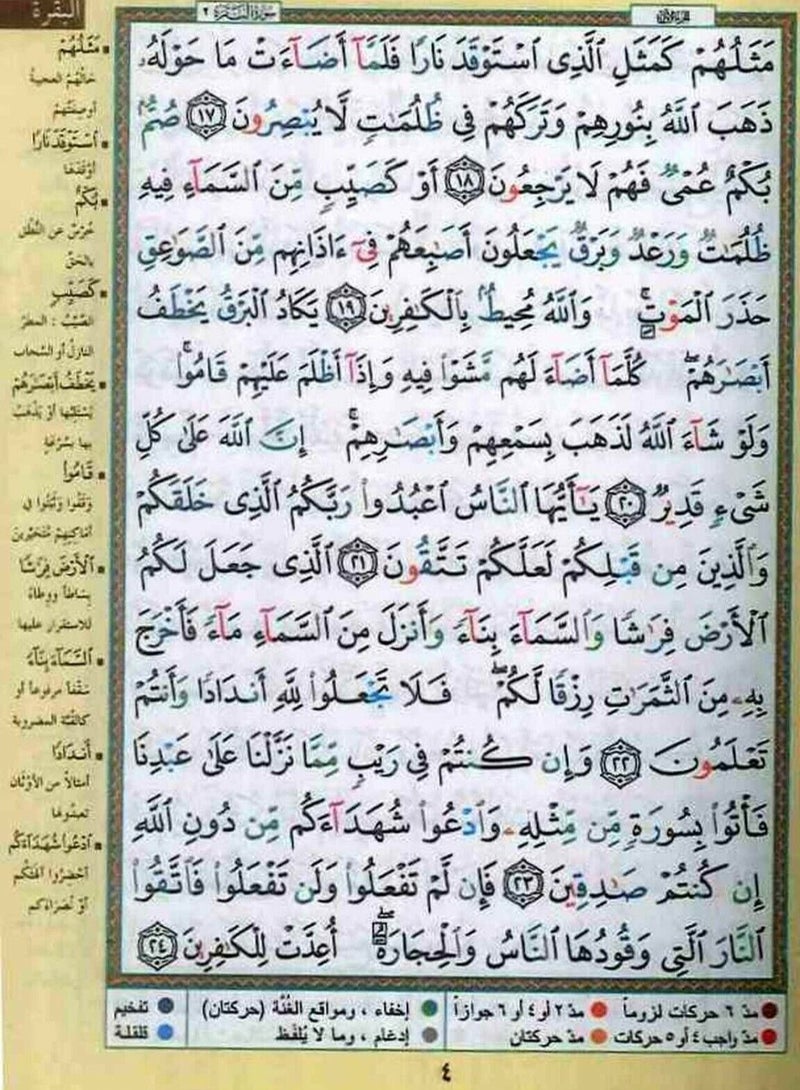 البقرة
سورة البقرة ٢
الجزء الأول
مَثَلُهُمْ كَمَثَلِ ٱلَّذِى ٱسْتَوْقَدَ نَارًا فَلَمَّآ أَضَآءَتْ مَا حَوْلَهُۥ
ذَهَبَ ٱللَّهُ بِنُورِهِمْ وَتَرَكَهُمْ فِى ظُلُمَٰتٍ لَّا يُبْصِرُونَ ١٧ صُمٌّۢ
بُكْمٌ عُمْىٌ فَهُمْ لَا يَرْجِعُونَ ١٨ أَوْ كَصَيِّبٍ مِّنَ ٱلسَّمَآءِ فِيهِ
ظُلُمَٰتٌ وَرَعْدٌ وَبَرْقٌ يَجْعَلُونَ أَصَٰبِعَهُمْ فِىٓ ءَاذَانِهِم مِّنَ ٱلصَّوَٰعِقِ
حَذَرَ ٱلْمَوْتِ ۚ وَٱللَّهُ مُحِيطٌۢ بِٱلْكَٰفِرِينَ ١٩ يَكَادُ ٱلْبَرْقُ يَخْطَفُ
أَبْصَٰرَهُمْ ۖ كُلَّمَآ أَضَآءَ لَهُم مَّشَوْا۟ فِيهِ وَإِذَآ أَظْلَمَ عَلَيْهِمْ قَامُوا۟ ۚ
وَلَوْ شَآءَ ٱللَّهُ لَذَهَبَ بِسَمْعِهِمْ وَأَبْصَٰرِهِمْ ۚ إِنَّ ٱللَّهَ عَلَىٰ كُلِّ
شَىْءٍ قَدِيرٌ ٢٠ يَٰٓأَيُّهَا ٱلنَّاسُ ٱعْبُدُوا۟ رَبَّكُمُ ٱلَّذِى خَلَقَكُمْ
وَٱلَّذِينَ مِن قَبْلِكُمْ لَعَلَّكُمْ تَتَّقُونَ ٢١ ٱلَّذِى جَعَلَ لَكُمُ
ٱلْأَرْضَ فِرَٰشًا وَٱلسَّمَآءَ بِنَآءً وَأَنزَلَ مِنَ ٱلسَّمَآءِ مَآءً فَأَخْرَجَ
بِهِۦ مِنَ ٱلثَّمَرَٰتِ رِزْقًا لَّكُمْ ۖ فَلَا تَجْعَلُوا۟ لِلَّهِ أَندَادًا وَأَنتُمْ
تَعْلَمُونَ ٢٢ وَإِن كُنتُمْ فِى رَيْبٍ مِّمَّا نَزَّلْنَا عَلَىٰ عَبْدِنَا
فَأْتُوا۟ بِسُورَةٍ مِّن مِّثْلِهِۦ وَٱدْعُوا۟ شُهَدَآءَكُم مِّن دُونِ ٱللَّهِ
إِن كُنتُمْ صَٰدِقِينَ ٢٣ فَإِن لَّمْ تَفْعَلُوا۟ وَلَن تَفْعَلُوا۟ فَٱتَّقُوا۟
ٱلنَّارَ ٱلَّتِى وَقُودُهَا ٱلنَّاسُ وَٱلْحِجَارَةُ ۖ أُعِدَّتْ لِلْكَٰفِرِينَ ٢٤
مَثَلُهُمْ
حالهم العجيبة
أو صفتهم
ٱسْتَوْقَدَ نَارًا
أوقدها
بُكْمٌ
خرس عن النطق
بالحق
كَصَيِّبٍ
الصيب : المطر
النازل أو السحاب
يَخْطَفُ أَبْصَٰرَهُمْ
يستلبها أو يذهب
بها بسرعة
قَامُوا۟
وقفوا وثبتوا في
أماكنهم متحيرين
ٱلْأَرْضَ فِرَٰشًا
بساطاً ووطاء
للاستقرار عليها
ٱلسَّمَآءَ بِنَآءً
سقفاً مرفوعاً أو
كالقبة المضروبة
أَندَادًا
أمثالاً من الأوثان
تعبدونها
ٱدْعُوا۟ شُهَدَآءَكُم
أحضروا آلهتكم
أو نصراءكم
مدّ ٦ حركات لزوماً
مدّ ٢ أو ٤ أو ٦ جوازاً
إخفاء ، ومواقع الغُنَّة (حركتان)
تفخيم
مدّ واجب ٤ أو ٥ حركات
مدّ حركتان
إدغام ، وما لا يُلفَظ
قلقلة
٤